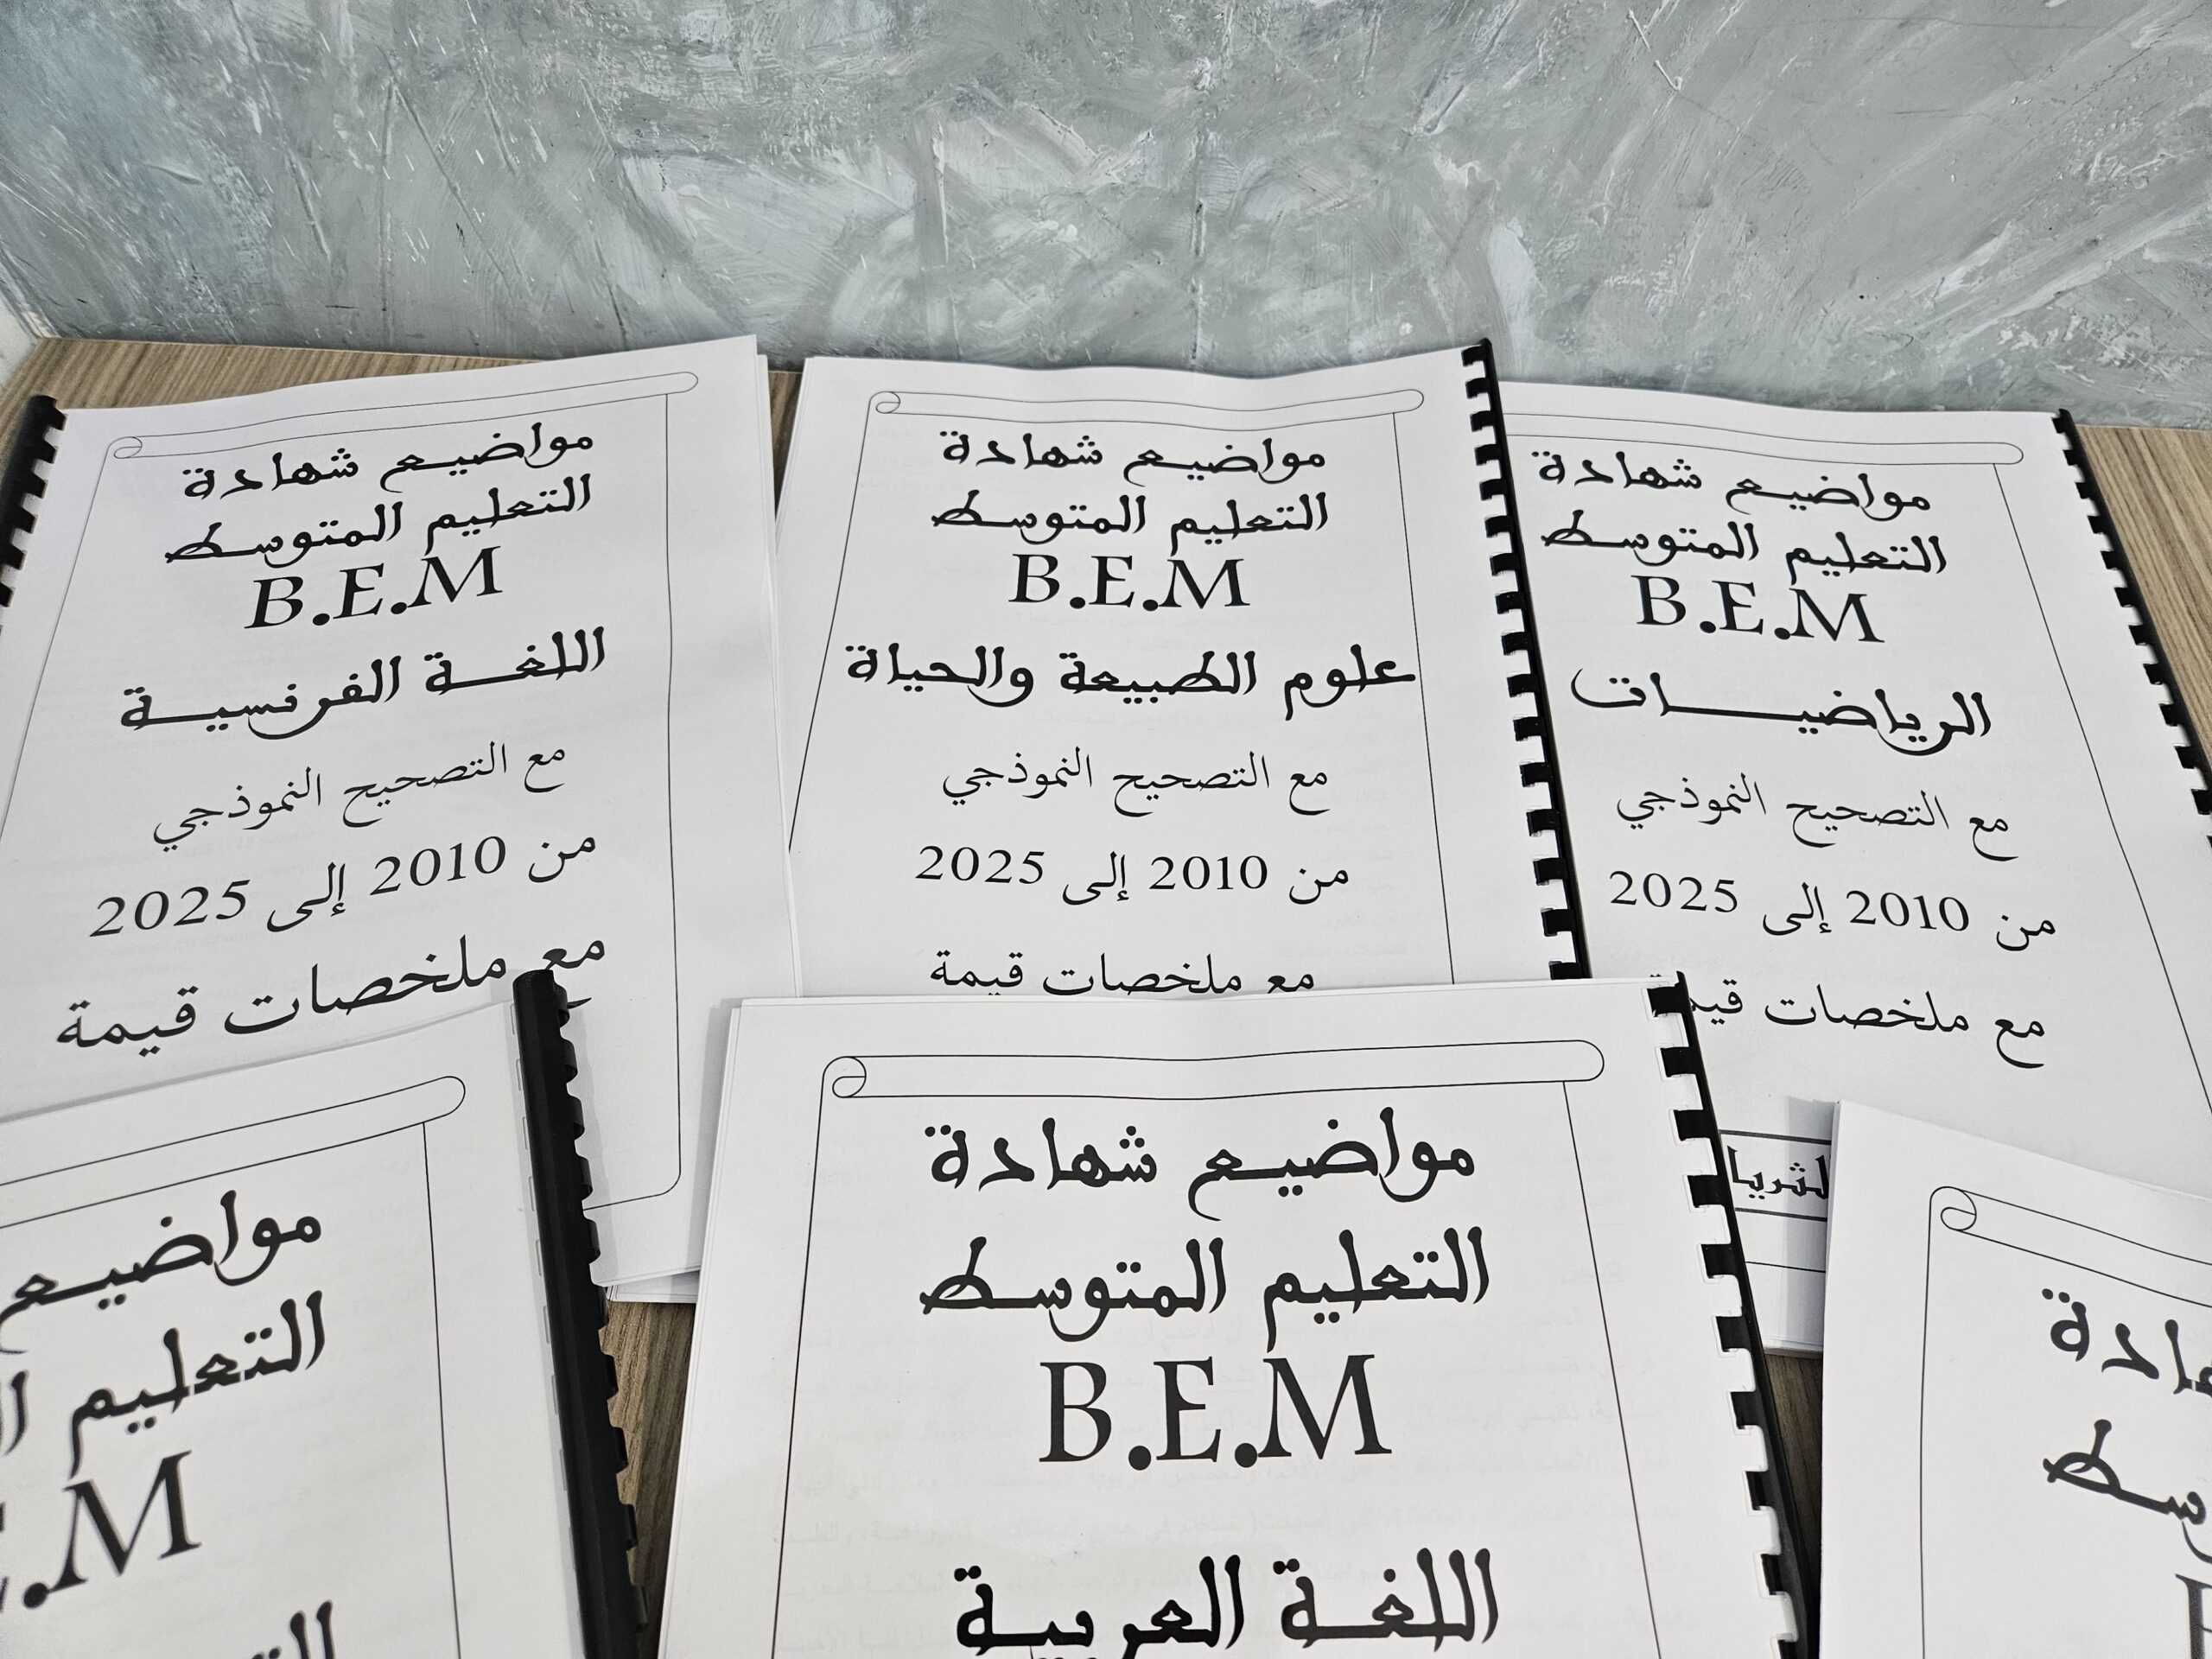 مواضيع شهادة
التعليم المتوسط
B.E.M
اللغة الفرنسية
مع التصحيح النموذجي
من 2010 إلى 2025
مع ملخصات قيمة
مواضيع شهادة
التعليم المتوسط
B.E.M
علوم الطبيعة والحياة
مع التصحيح النموذجي
من 2010 إلى 2025
مع ملخصات قيمة
مواضيع شهادة
التعليم المتوسط
B.E.M
الرياضيات
مع التصحيح النموذجي
من 2010 إلى 2025
مع ملخصات
مواضيع
التعليم
.M
مواضيع شهادة
التعليم المتوسط
B.E.M
اللغة العربية